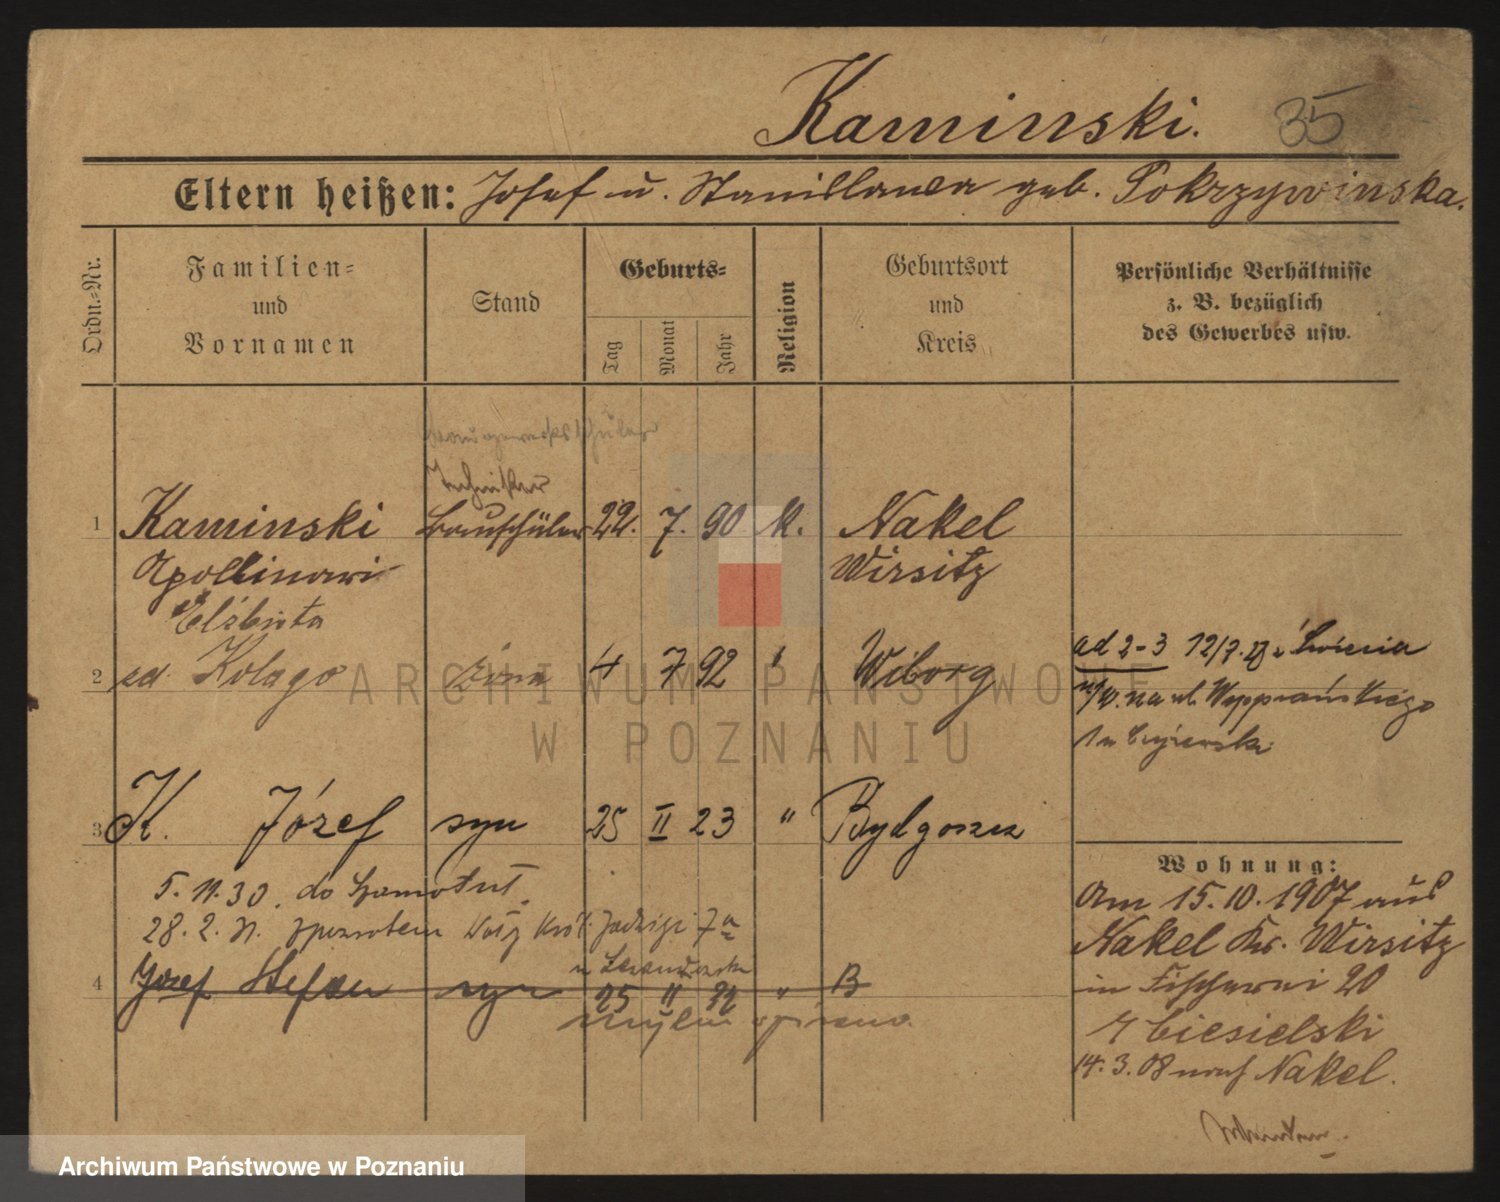 Kaminski. 35
Eltern heißen: Josef u. Stanislawa geb. Pokrzywinska.
Ordn.-Nr.
Familien-
und
Vornamen
Stand
Geburts-
Tag
Monat
Jahr
Religion
Geburtsort
und
Kreis
Persönliche Verhältnisse
z. B. bezüglich
des Gewerbes usw.
Baugewerkschüler
Techniker
1 Kaminski Bauschüler 22. 7. 90 k. Nakel
Apollinari Wirsitz
Elżbieta
2 zd. Kolago żona 4 7 92 " Wiborg
ad 2-3 12/7.
na ul.
3 K. Józef syn 25 II 23 " Bydgoszcz
5. 11. 30. do Szamotuł
28. 2. 31. zpowrotem Jadwigi 7a
4 Józef Stefan syn 25 II 22 " B
mylnie wpisano.
Wohnung:
Am 15.10.1907 aus
Nakel Kr. Wirsitz
in Fischerei 20
b/ Ciesielski
14.3.08 nach Nakel.
ARCHIWUM PAŃSTWOWE
W POZNANIU
Archiwum Państwowe w Poznaniu